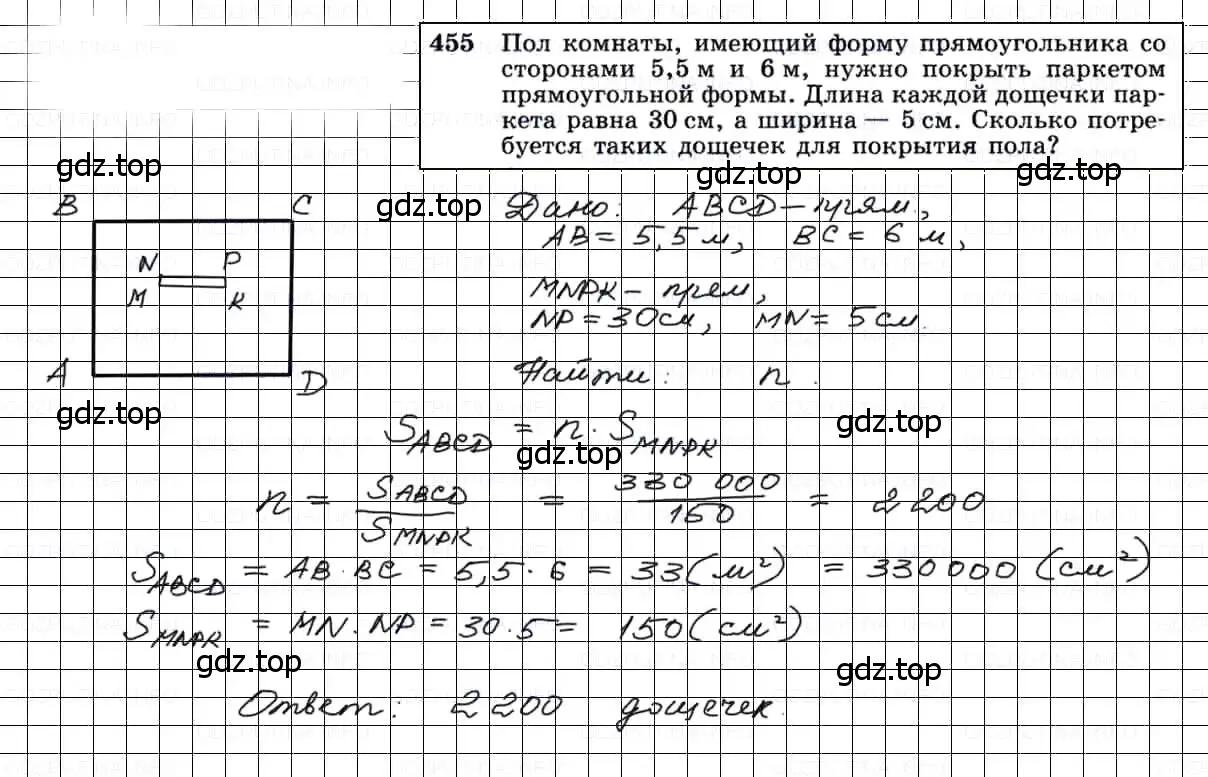 455 Пол комнаты, имеющий форму прямоугольника со
сторонами 5,5 м и 6 м, нужно покрыть паркетом
прямоугольной формы. Длина каждой дощечки пар-
кета равна 30 см, а ширина – 5 см. Сколько потре-
буется таких дощечек для покрытия пола?
gdz.top
gdz.top
gdz.top
gdz.top
B C
N P
M K
A D
Дано: ABCD – прям.,
AB = 5,5 м, BC = 6 м,
MNPK – прям,
NP = 30 см, MN = 5 см.
Найти: n.
gdz.top
gdz.top
S ABCD = n · S MNPK
gdz.top
n = S ABCD / S MNPK = 330 000 / 150 = 2 200
S ABCD = AB · BC = 5,5 · 6 = 33 (м²) = 330 000 (см²)
S MNPK = MN · NP = 30 · 5 = 150 (см²)
gdz.top
gdz.top
Ответ: 2 200 дощечек.